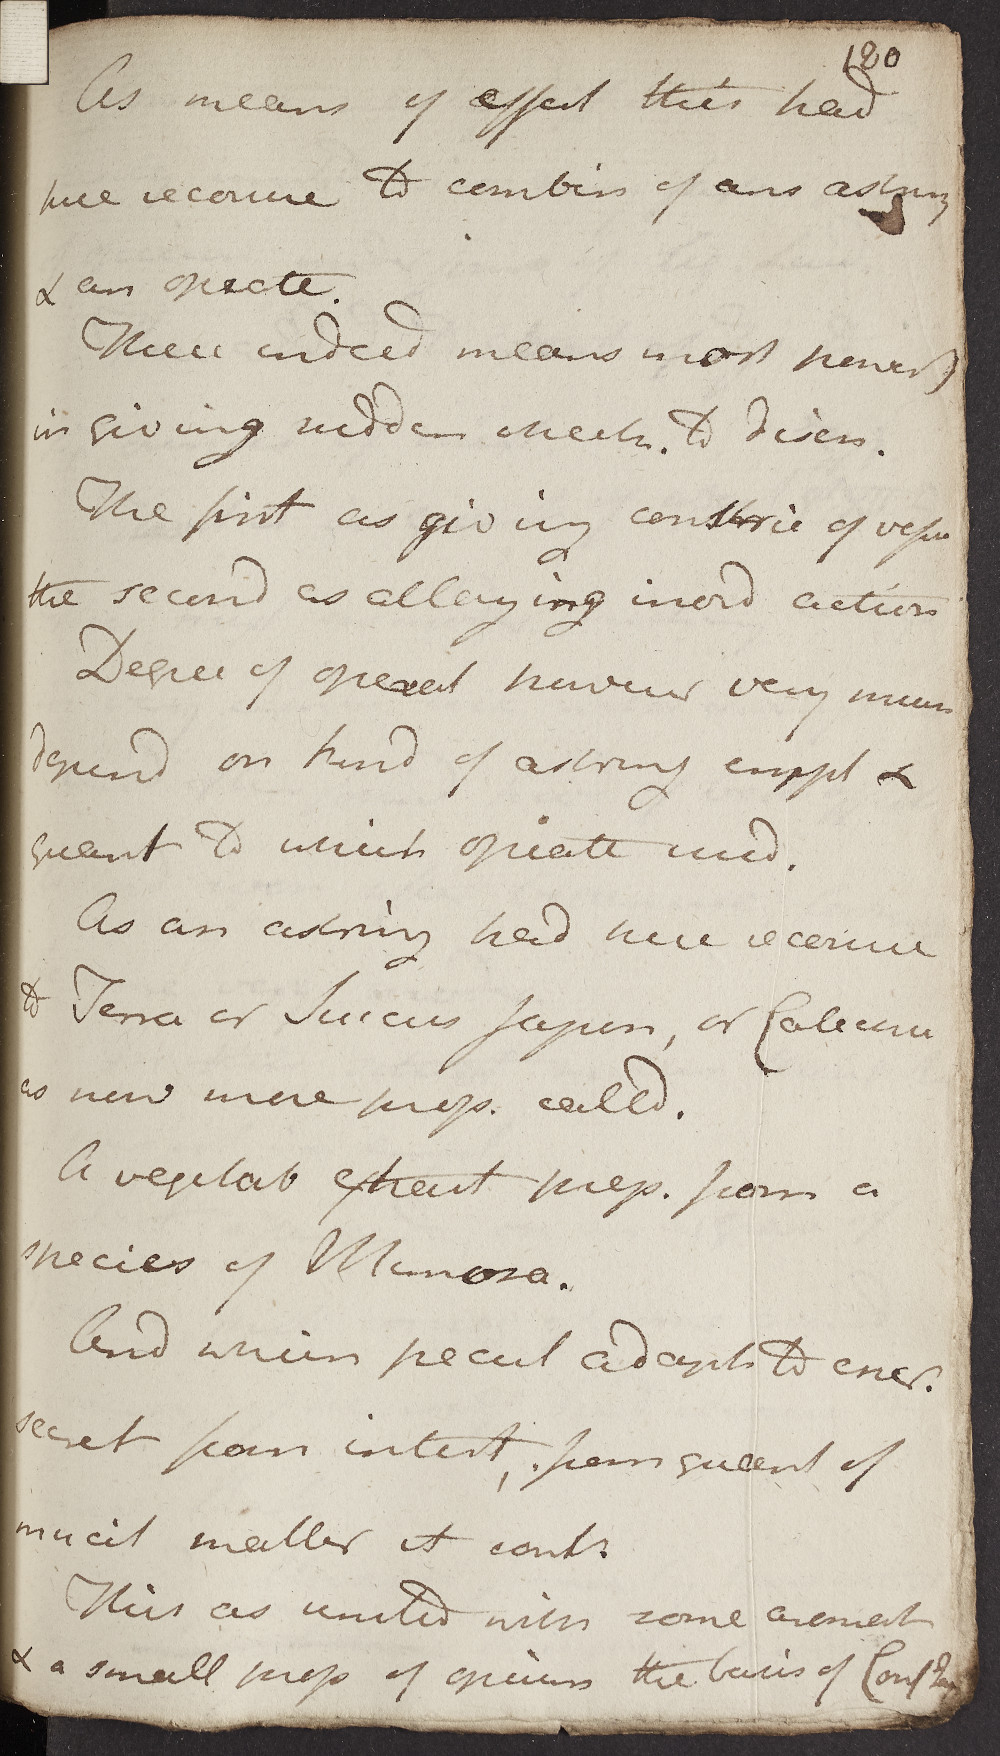 180
As means of effect this had
here recourse to combin of an astring
& an opiate.
These indeed means most powerf
in giving sudden check. to disen.
The first as giving constric of vesse
the second as allaying inord action
Degree of operat however very much
depend on kind of astring empl &
quant to which opiate used.
As an astring had here recourse
to Terra or Succus Japon, or Catechu
as now more prop. called.
A vegetab extract prep. from a
species of Mimosa.
And which pecul adapt to incr.
secret from intest, from quant of
mucil matter it cont.
This as united with some aromat
& a small prop of opium the basis of Conf Jap